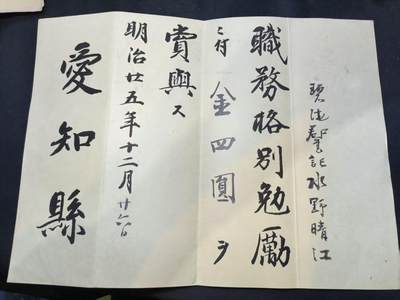 碧海郡書記水野晴江
職務格別勉励
ニ付金四圓ヲ
賞與ス
明治廿五年十二月廿六日
愛知縣